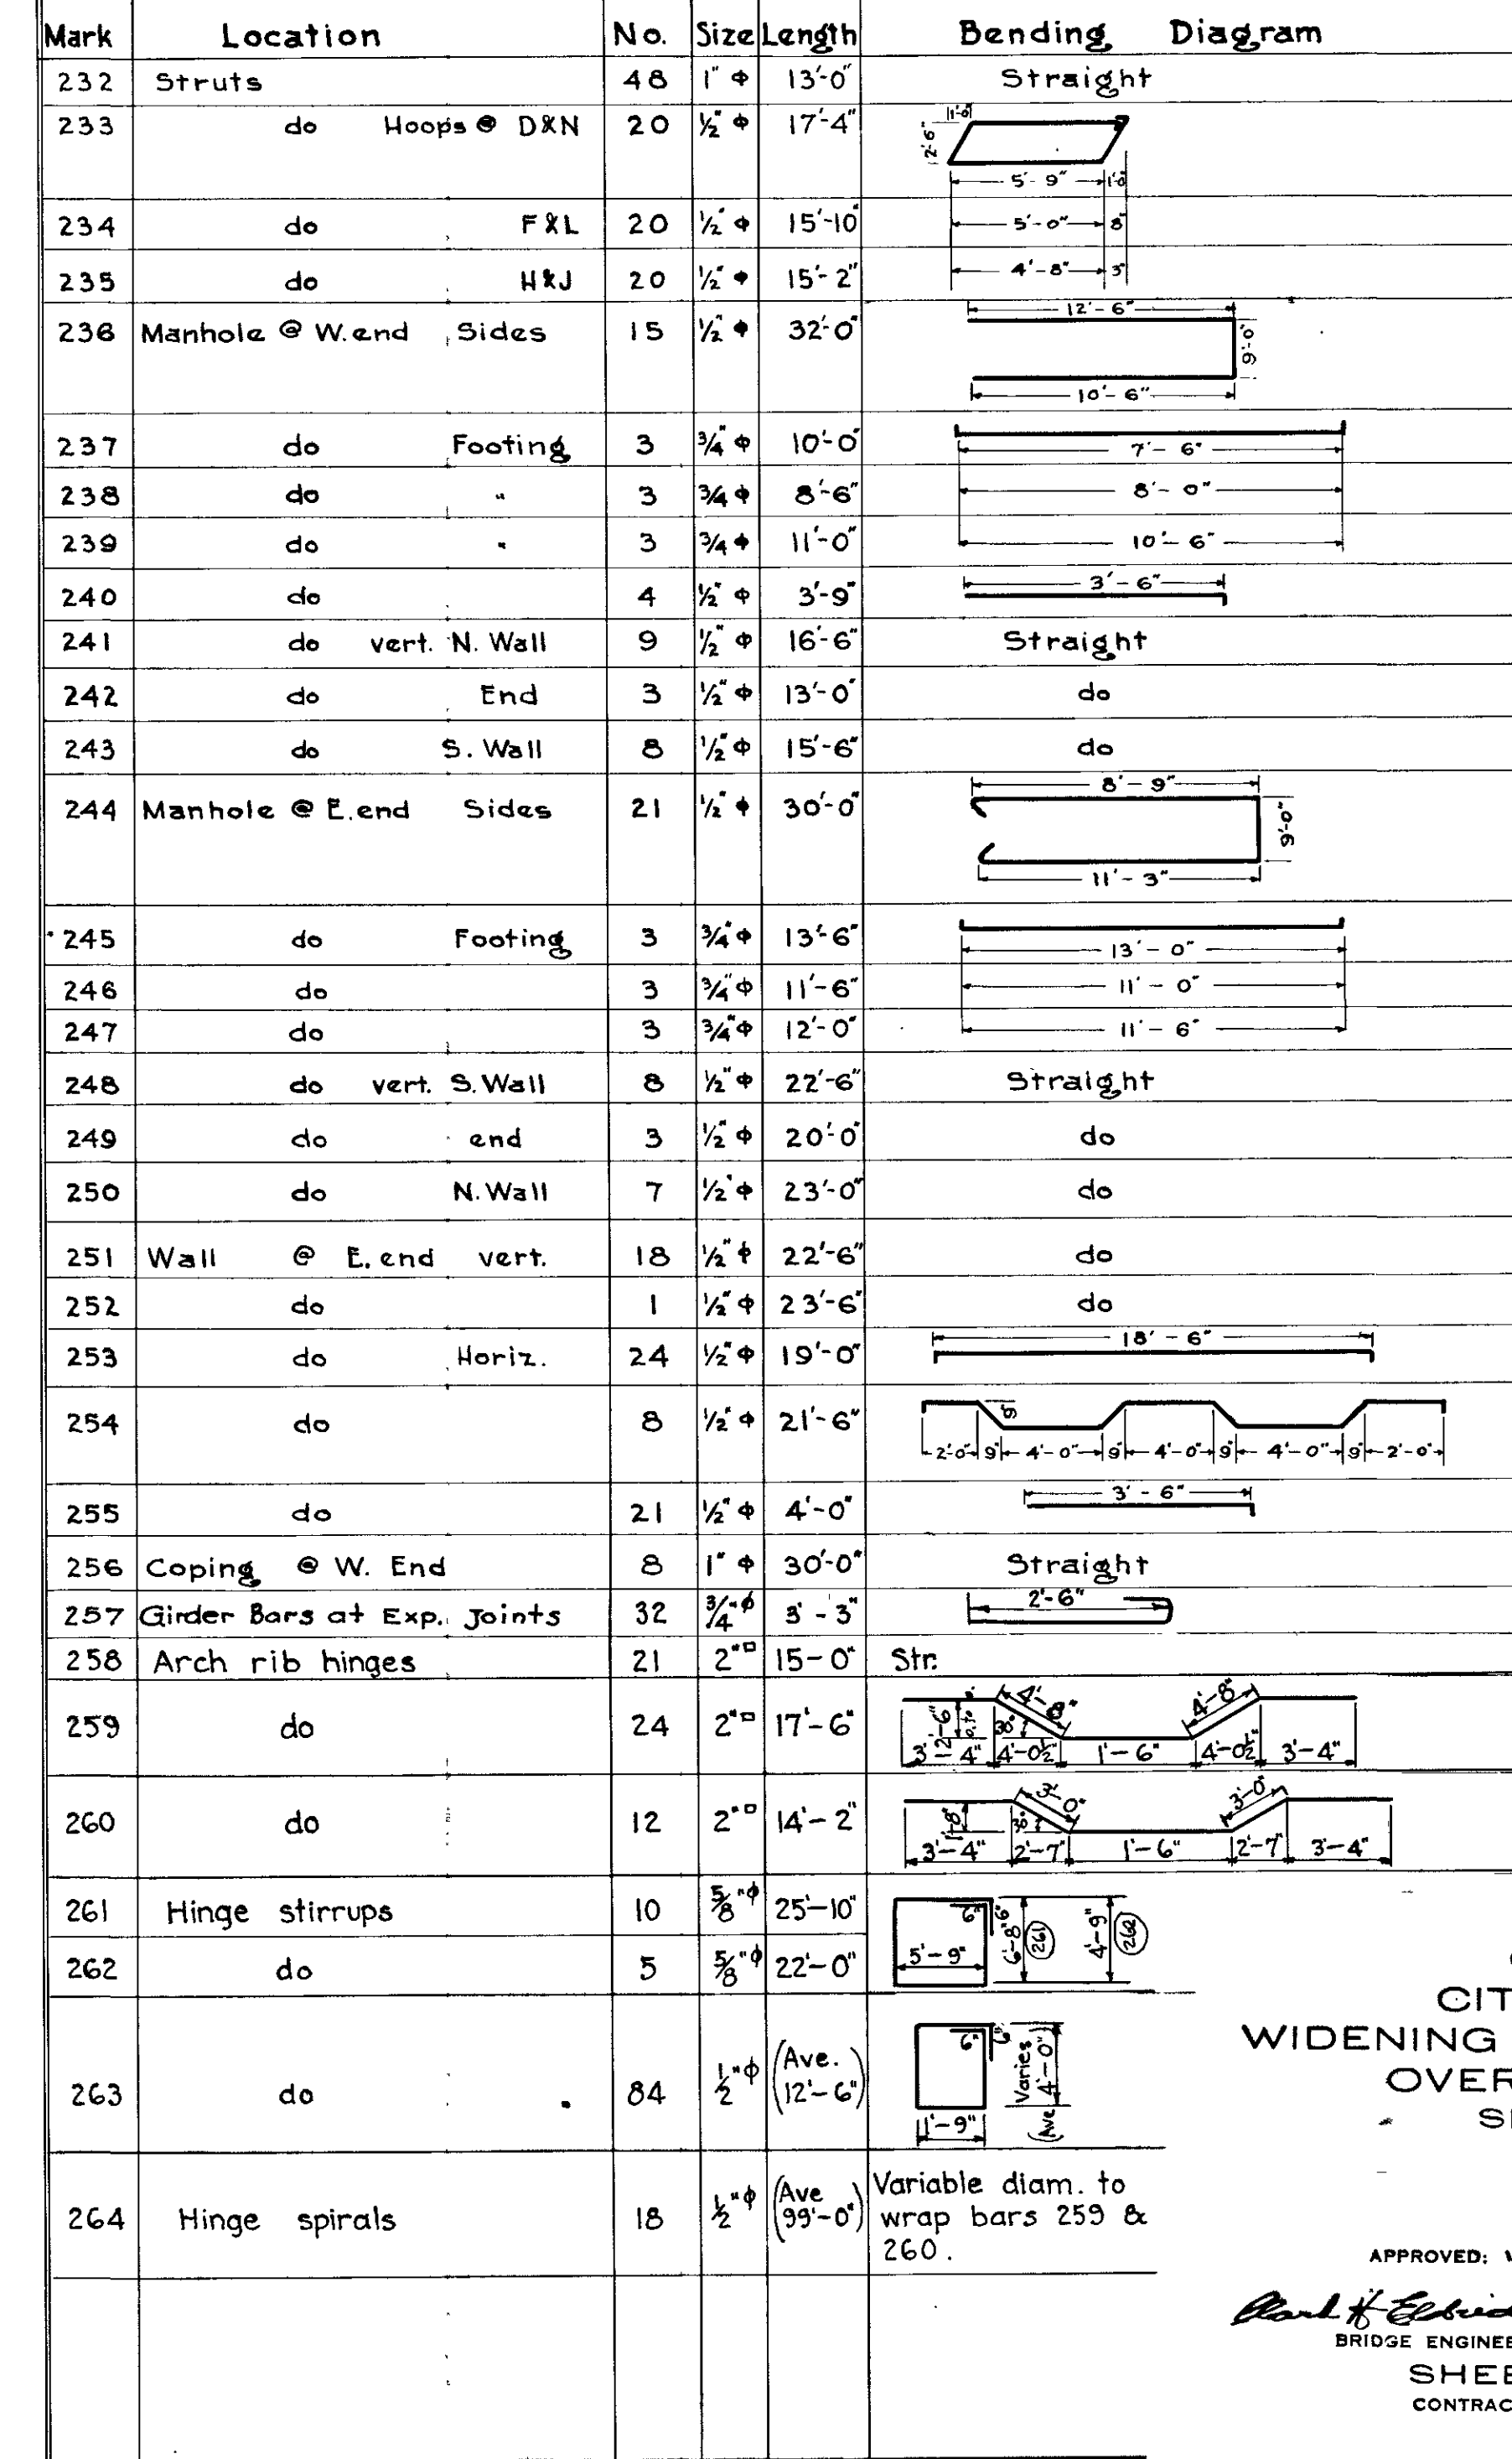 Mark Location No. Size Length Bending Diagram
232 Struts 48 1" ϕ 13'-0" Straight
233 do Hoops @ D&N 20 ½" ϕ 17'-4" 1'-0" 2'-6"
5'-9" 1'-0"
234 do F&L 20 ½" ϕ 15'-10" 5'-0" 8"
235 do H&J 20 ½" ϕ 15'-2" 4'-8" 3"
236 Manhole @ W. end Sides 15 ½" ϕ 32'-0" 12'-6" 9'-0"
10'-6"
237 do Footing 3 ¾" ϕ 10'-0" 7'-6"
238 do " 3 ¾ ϕ 8'-6" 8'-0"
239 do " 3 ¾ ϕ 11'-0" 10'-6"
240 do 4 ½" ϕ 3'-9" 3'-6"
241 do vert. N. Wall 9 ½" ϕ 16'-6" Straight
242 do End 3 ½" ϕ 13'-0" do
243 do S. Wall 8 ½" ϕ 15'-6" do
244 Manhole @ E. end Sides 21 ½" ϕ 30'-0" 8'-9" 9'-0"
11'-3"
245 do Footing 3 ¾" ϕ 13'-6" 13'-0"
246 do 3 ¾" ϕ 11'-6" 11'-0"
247 do 3 ¾" ϕ 12'-0" 11'-6"
248 do vert. S. Wall 8 ½" ϕ 22'-6" Straight
249 do end 3 ½" ϕ 20'-0" do
250 do N. Wall 7 ½" ϕ 23'-0" do
251 Wall @ E. end vert. 18 ½" ϕ 22'-6" do
252 do 1 ½" ϕ 23'-6" do
253 do Horiz. 24 ½" ϕ 19'-0" 18'-6"
254 do 8 ½" ϕ 21'-6" 9"
2'-0" 9" 4'-0" 9" 4'-0" 9" 4'-0" 9" 2'-0"
255 do 21 ½" ϕ 4'-0" 3'-6"
256 Coping @ W. End 8 1" ϕ 30'-0" Straight
257 Girder Bars at Exp. Joints 32 ¾" ϕ 3'-3" 2'-6"
258 Arch rib hinges 21 2"□ 15-0" Str.
259 do 24 2"□ 17'-6" 2'-6" 30° 4'-8" 4'-8"
3'-4" 4'-0½" 1'-6" 4'-0½" 3'-4"
260 do 12 2"□ 14'-2" 1'-8" 30° 3'-0" 3'-0"
3'-4" 2'-7" 1'-6" 2'-7" 3'-4"
261 Hinge stirrups 10 ⅝" ϕ 25'-10" 6" 6" 6'-8" 261 4'-9" 262
262 do 5 ⅝" ϕ 22'-0" 5'-9"
263 do 84 ½" ϕ (Ave. 12'-6") 6" 6" Varies (Ave 4'-0")
1'-9"
264 Hinge spirals 18 ½" ϕ (Ave 99'-0") Variable diam. to
wrap bars 259 &
260.
CIT
WIDENING
OVER
APPROVED:
BRIDGE ENGINEE
SHEE
CONTRAC